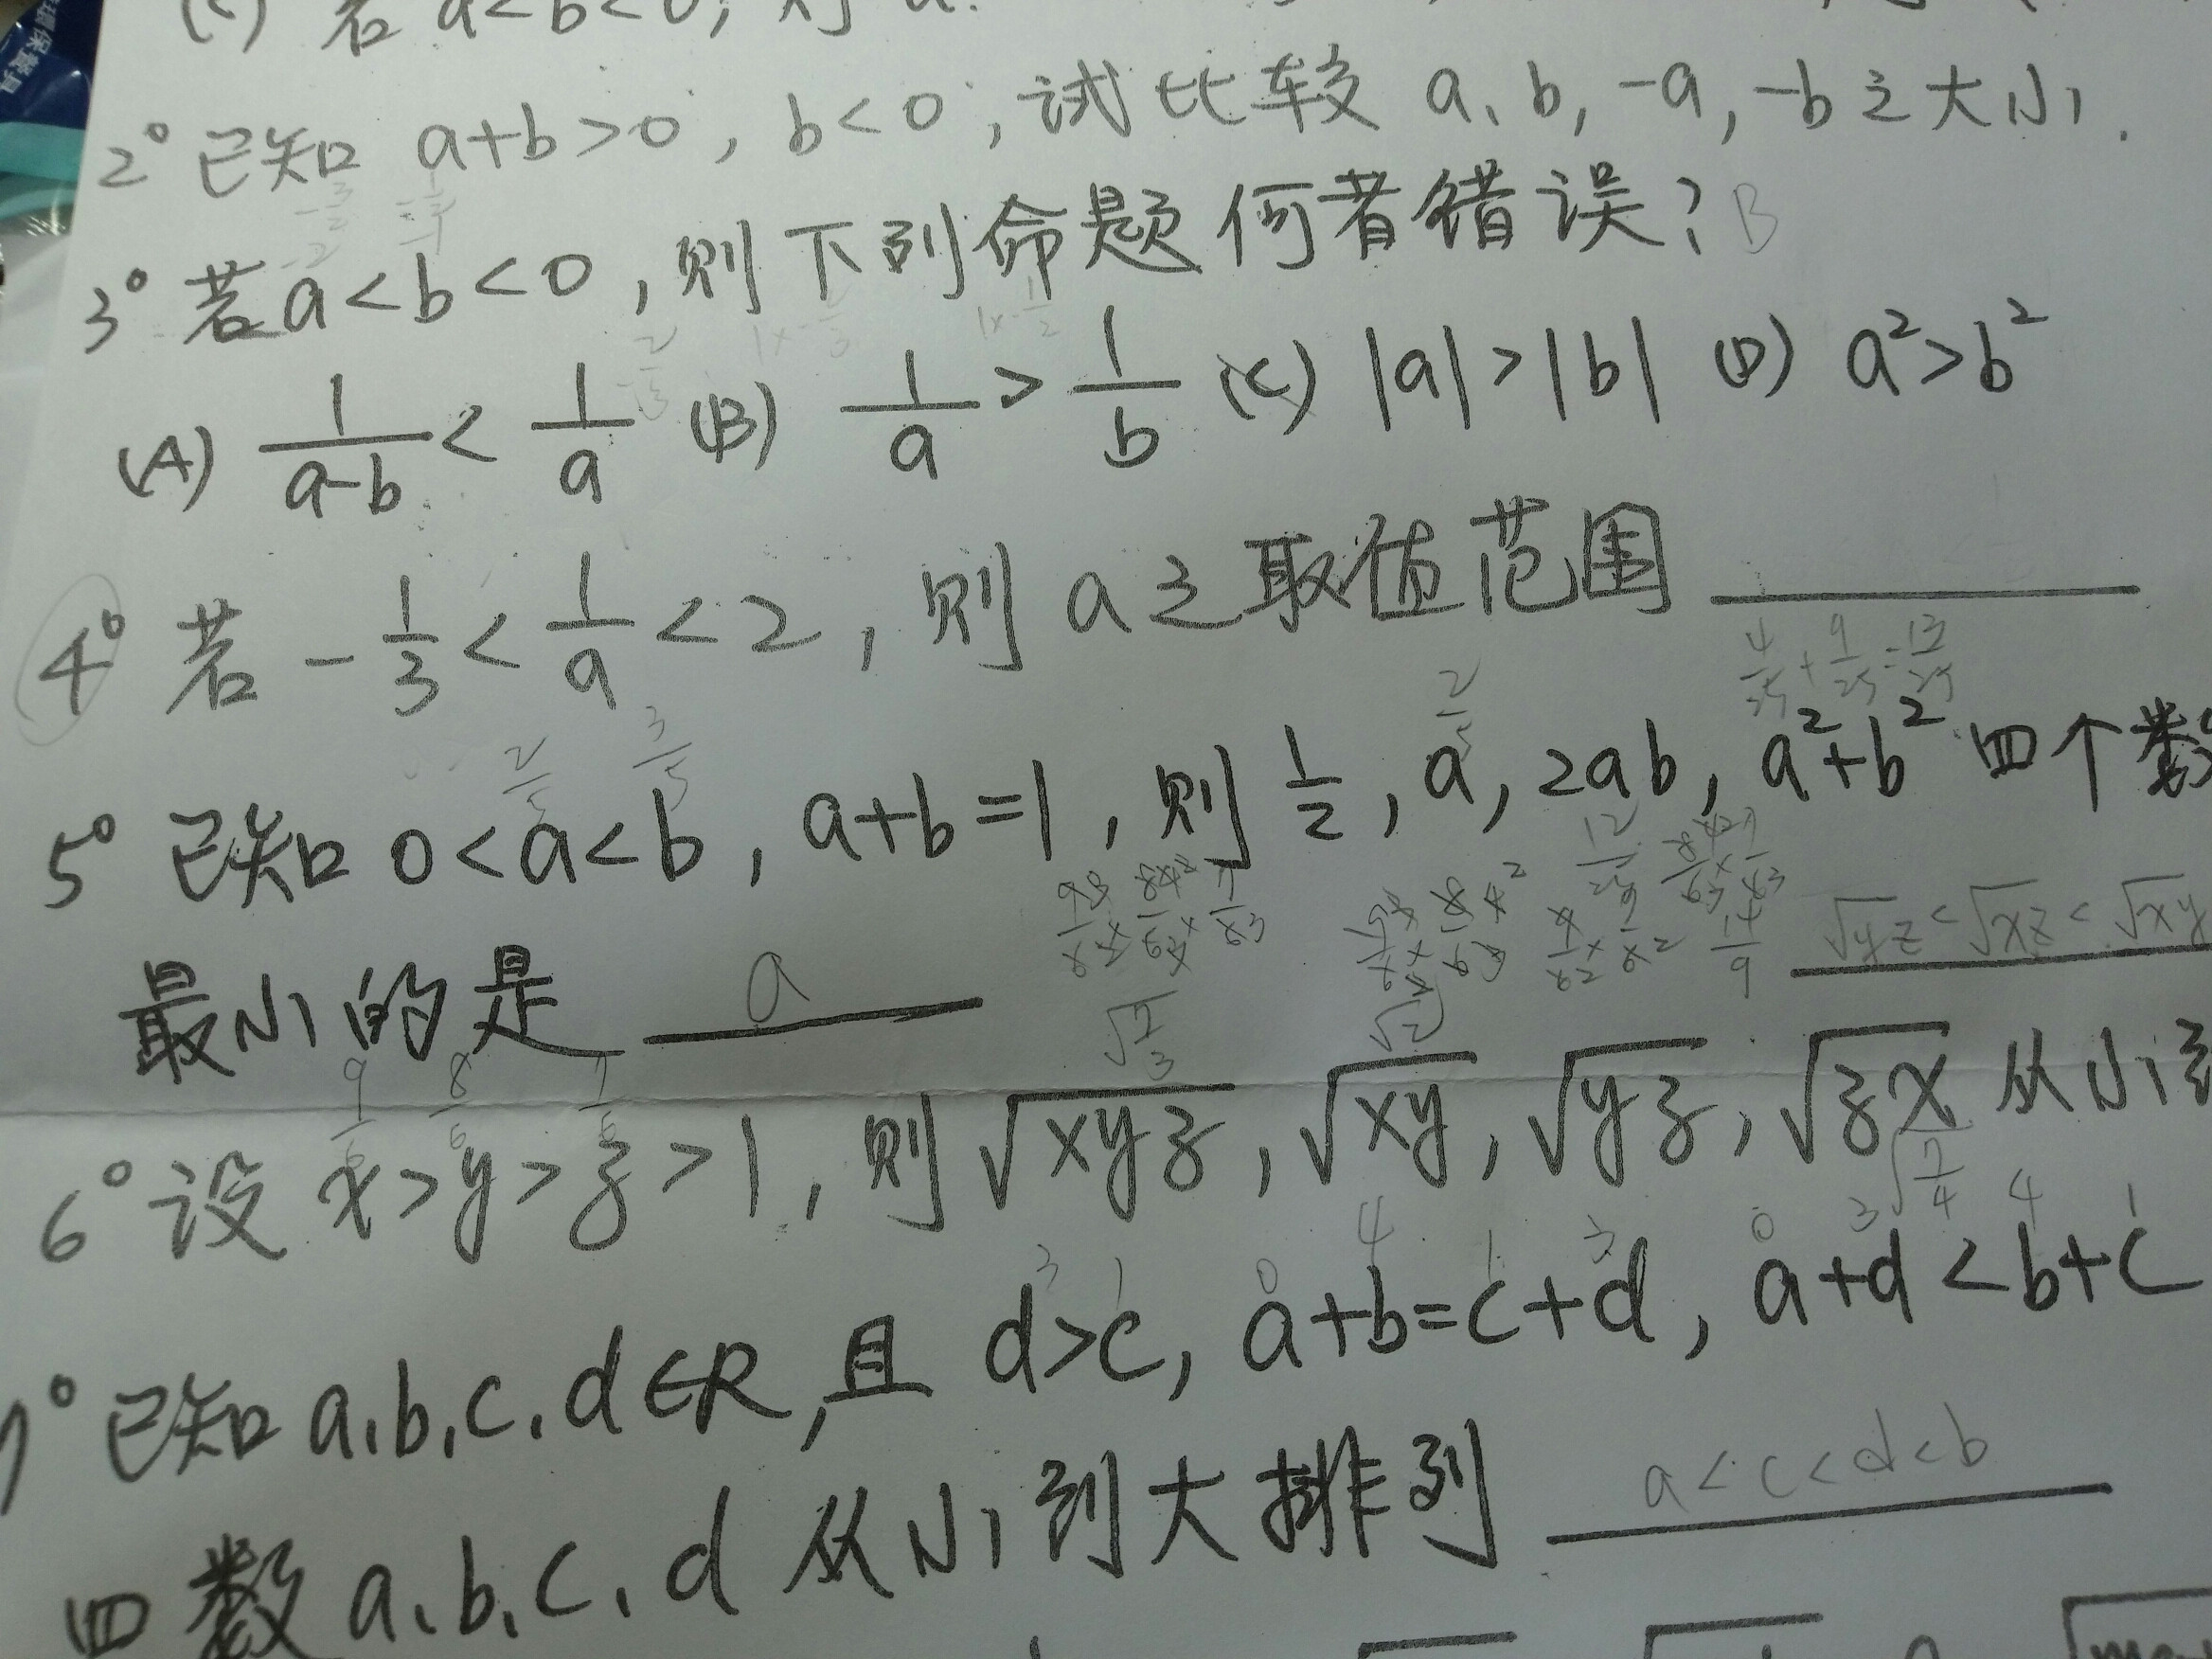 (C) 若 a<b<0, 则 a
2° 已知 a+b>0, b<0, 试比较 a、b, -a, -b之大小.
3° 若 a<b<0, 则下列命题何者错误? B
(A) 1/(a-b) < 1/a (B) 1/a > 1/b (C) |a|>|b| (D) a²>b²
4° 若 -1/3 < 1/a < 2, 则 a 之取值范围
4/25 + 9/25 = 13/25
5° 已知 0<a<b, a+b=1, 则 1/2, a, 2ab, a²+b² 四个数
最小的是 a
√yz < √xz < √xy
6° 设 x>y>z>1, 则 √xyz, √xy, √yz, √zx 从小到
7° 已知 a,b,c,d∈R,且 d>c, a+b=c+d, a+d<b+c
四数 a、b、c、d 从小到大排列 a<c<d<b